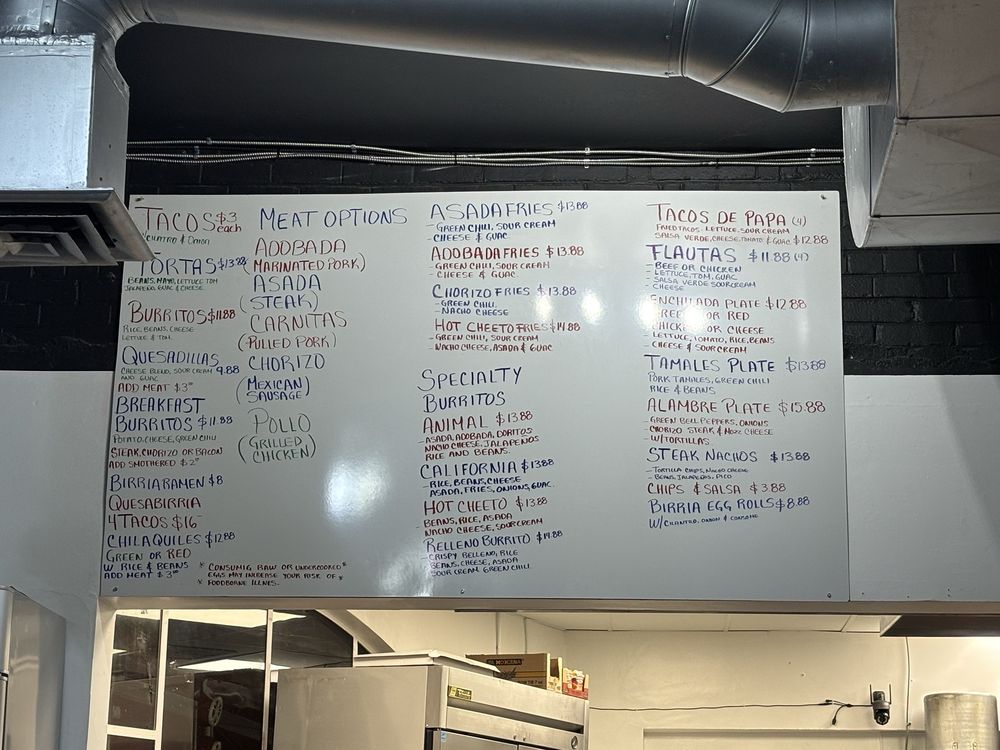 TACOS $3 each
W/CILANTRO & ONION
TORTAS $13.88
BEANS, MAYO, LETTUCE TOM
JALAPENO, GUAC & CHEESE
BURRITOS $11.88
RICE, BEANS, CHEESE
LETTUCE & TOM.
QUESADILLAS 9.88
CHEESE BLEND, SOUR CREAM
AND GUAC
ADD MEAT $3
BREAKFAST
BURRITOS $11.88
POTATO, CHEESE, GREEN CHILI
STEAK, CHORIZO OR BACON
ADD SMOTHERED $2
BIRRIA RAMEN $8
QUESABIRRIA
4 TACOS $16
CHILAQUILES $12.88
GREEN OR RED
W RICE & BEANS
ADD MEAT $3
MEAT OPTIONS
ADOBADA
(MARINATED PORK)
ASADA
(STEAK)
CARNITAS
(PULLED PORK)
CHORIZO
(MEXICAN
SAUSAGE)
POLLO
(GRILLED
CHICKEN)
* CONSUMIG RAW OR UNDERCOOKED *
EGGS MAY INCREASE YOUR RISK OF *
* FOODBORNE ILLNES.
ASADA FRIES $13.88
- GREEN CHILI, SOUR CREAM
- CHEESE & GUAC
ADOBADA FRIES $13.88
- GREEN CHILI, SOUR CREAM
- CHEESE & GUAC
CHORIZO FRIES $13.88
- GREEN CHILI
- NACHO CHEESE
HOT CHEETO FRIES $14.88
- GREEN CHILI, SOUR CREAM
- NACHO CHEESE, ASADA & GUAC
SPECIALTY
BURRITOS
ANIMAL $13.88
- ASADA, ADOBADA, DORITOS
NACHO CHEESE, JALAPENOS
RICE AND BEANS.
CALIFORNIA $13.88
- RICE, BEANS, CHEESE
ASADA, FRIES, ONIONS, GUAC.
HOT CHEETO $13.88
BEANS, RICE, ASADA
NACHO CHEESE, SOUR CREAM
RELLENO BURRITO $14.88
- CRISPY RELLENO, RICE
BEANS, CHEESE, ASADA
SOUR CREAM GREEN CHILI
TACOS DE PAPA (4)
FRIED TACOS, LETTUCE, SOUR CREAM
SALSA VERDE, CHEESE, TOMATO & GUAC $12.88
FLAUTAS $11.88 (4)
- BEEF OR CHICKEN
- LETTUCE, TOM, GUAC
- SALSA VERDE SOUR CREAM
- CHEESE
ENCHILADA PLATE $12.88
GREEN OR RED
CHICKEN OR CHEESE
- LETTUCE, TOMATO, RICE, BEANS
- CHEESE & SOUR CREAM
TAMALES PLATE $13.88
PORK TAMALES, GREEN CHILI
RICE & BEANS
ALAMBRE PLATE $15.88
- GREEN BELL PEPPERS, ONIONS
- CHORIZO STEAK & MOZZ CHEESE
- W/TORTILLAS
STEAK NACHOS $13.88
- TORTILLA CHIPS, NACHO CHEESE
- BEANS, JALAPENOS, PICO
CHIPS & SALSA $3.88
BIRRIA EGG ROLLS $8.88
W/CILANTRO, ONION & CONSOME